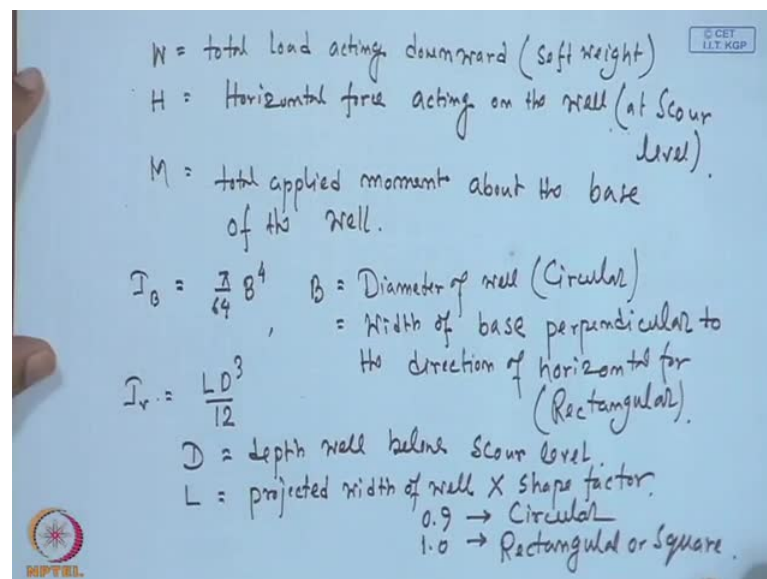 © CET
I.I.T. KGP
W = total load acting downward (Soft weight)
H = Horizontal force acting on the wall (at Scour
level).
M = total applied moment about the base
of the well.
I_B = π/64 B⁴ , B = Diameter of well (Circular)
= Width of base perpendicular to
the direction of horizontal for
(Rectangular).
I_v = LD³/12
D = depth well below scour level.
L = projected width of well X shape factor.
0.9 → Circular
1.0 → Rectangular or Square.
NPTEL